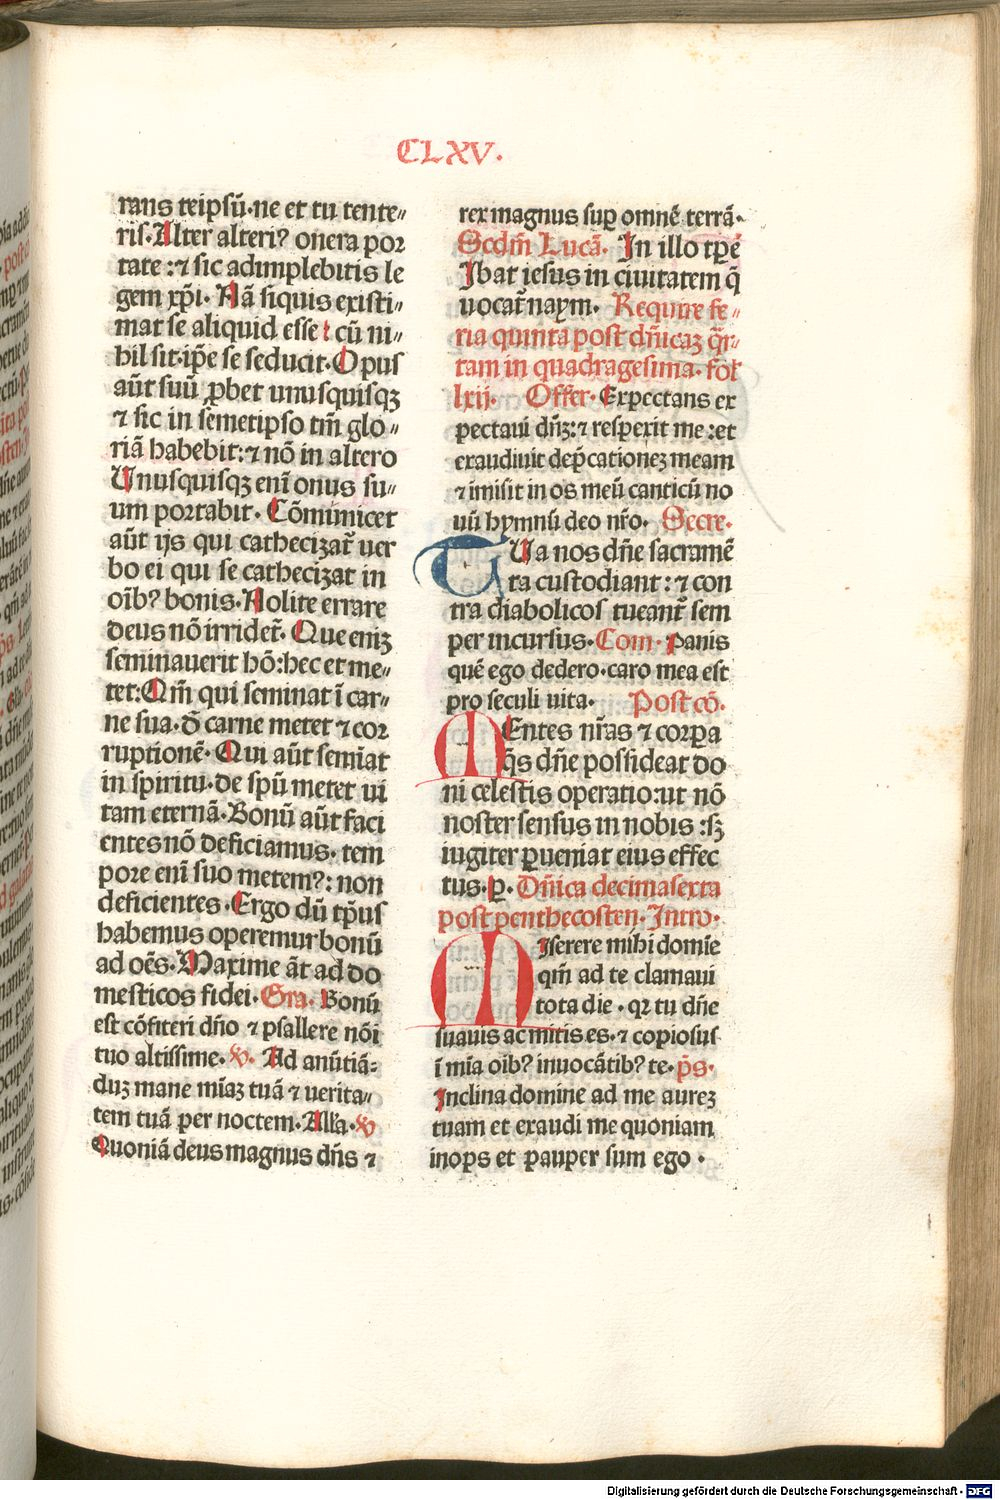 CLXV.
rans teipsū·ne et tu tente⸗
ris·Alter alteriꝰ onera por
tate:⁊ sic adimplebitis le
gem xp̄i· Nā̄ siquis existi⸗
mat se aliquid esse cū ni⸗
hil sit·ip̄e se seducit·Opus
aūt suū ꝓbet unusquisqꝫ
⁊ sic in semetipso tm̄ glo⸗
riā habebit:⁊ nō in altero
Unusquisqꝫ eni̅ onus su⸗
um portabit· Cōmunicet
aūt ijs qui cathecizat̄ ver
bo ei qui se cathecizat in
oīb⁹ bonis·Nolite errare
deus nō irridet̄· Que eniꝫ
seminauerit hō:hec et me⸗
tet:Qm̄ qui seminat ī car⸗
ne sua·d̄ carne metet ⁊ cor
ruptionē· Qui aūt semīat
in spiritu·de spū metet ui
tam eternā·Bonū aūt faci
entes nō deficiamus· tem
pore enī suo metemꝰ: non
deficientes·Ergo dū tp̄us
habemus operemur bonū
ad oēs·Maxime āt ad do
mesticos fidei·Gra· Bonū
est cōfiteri dn̄o ⁊ psallere nōi
tuo altissime· v· Ad anūtiā⸗
duꝫ mane mīaꝫ tuā ⁊ verita⸗
tem tuā per noctem·Alla·v
Quoniā deus magnus dn̄s ⁊
rex magnus sup omnē terrā·
Scdm̄ Lucā· In illo tp̄e
Ibat iesus in ciuitatem q̄
uocat̄ naym· Require fe⸗
ria quinta post dn̄icaꝫ q̄r⸗
tam in quadragesima· fol
lxij· Offer· Expectans ex
pectaui dn̄ꝫ:⁊ respexit me:et
exaudiuit dep̄cationeꝫ meam
⁊ imisit in os meū canticū no
uū hymnū deo nr̄o· Secre·
TUa nos dn̄e sacramē
ta custodiant:⁊ con
tra diabolicos tueant̄ sem
per incursus·Com· Panis
quē ego dedero·caro mea est
pro seculi uita· Post cō·
MEntes nr̄as ⁊ corpa
q̄s dn̄e possideat do
ni celestis operatio:ut nō
noster sensus in nobis :sꝫ
iugiter ꝓueniat eius effec
tus·p· Dn̄ica decimasexta
post penthecosten·Intro·
MIserere mihi domīe
qm̄ ad te clamaui
tota die·qꝛ tu dn̄e
suauis ac mitis es·⁊ copiosus
ī mīa oīb⁹ inuocātib⁹ te·p̄s·
Inclina domine ad me aureꝫ
tuam et exaudi me quoniam
inops et pauper sum ego·
Digitalisierung gefördert durch die Deutsche Forschungsgemeinschaft - DFG